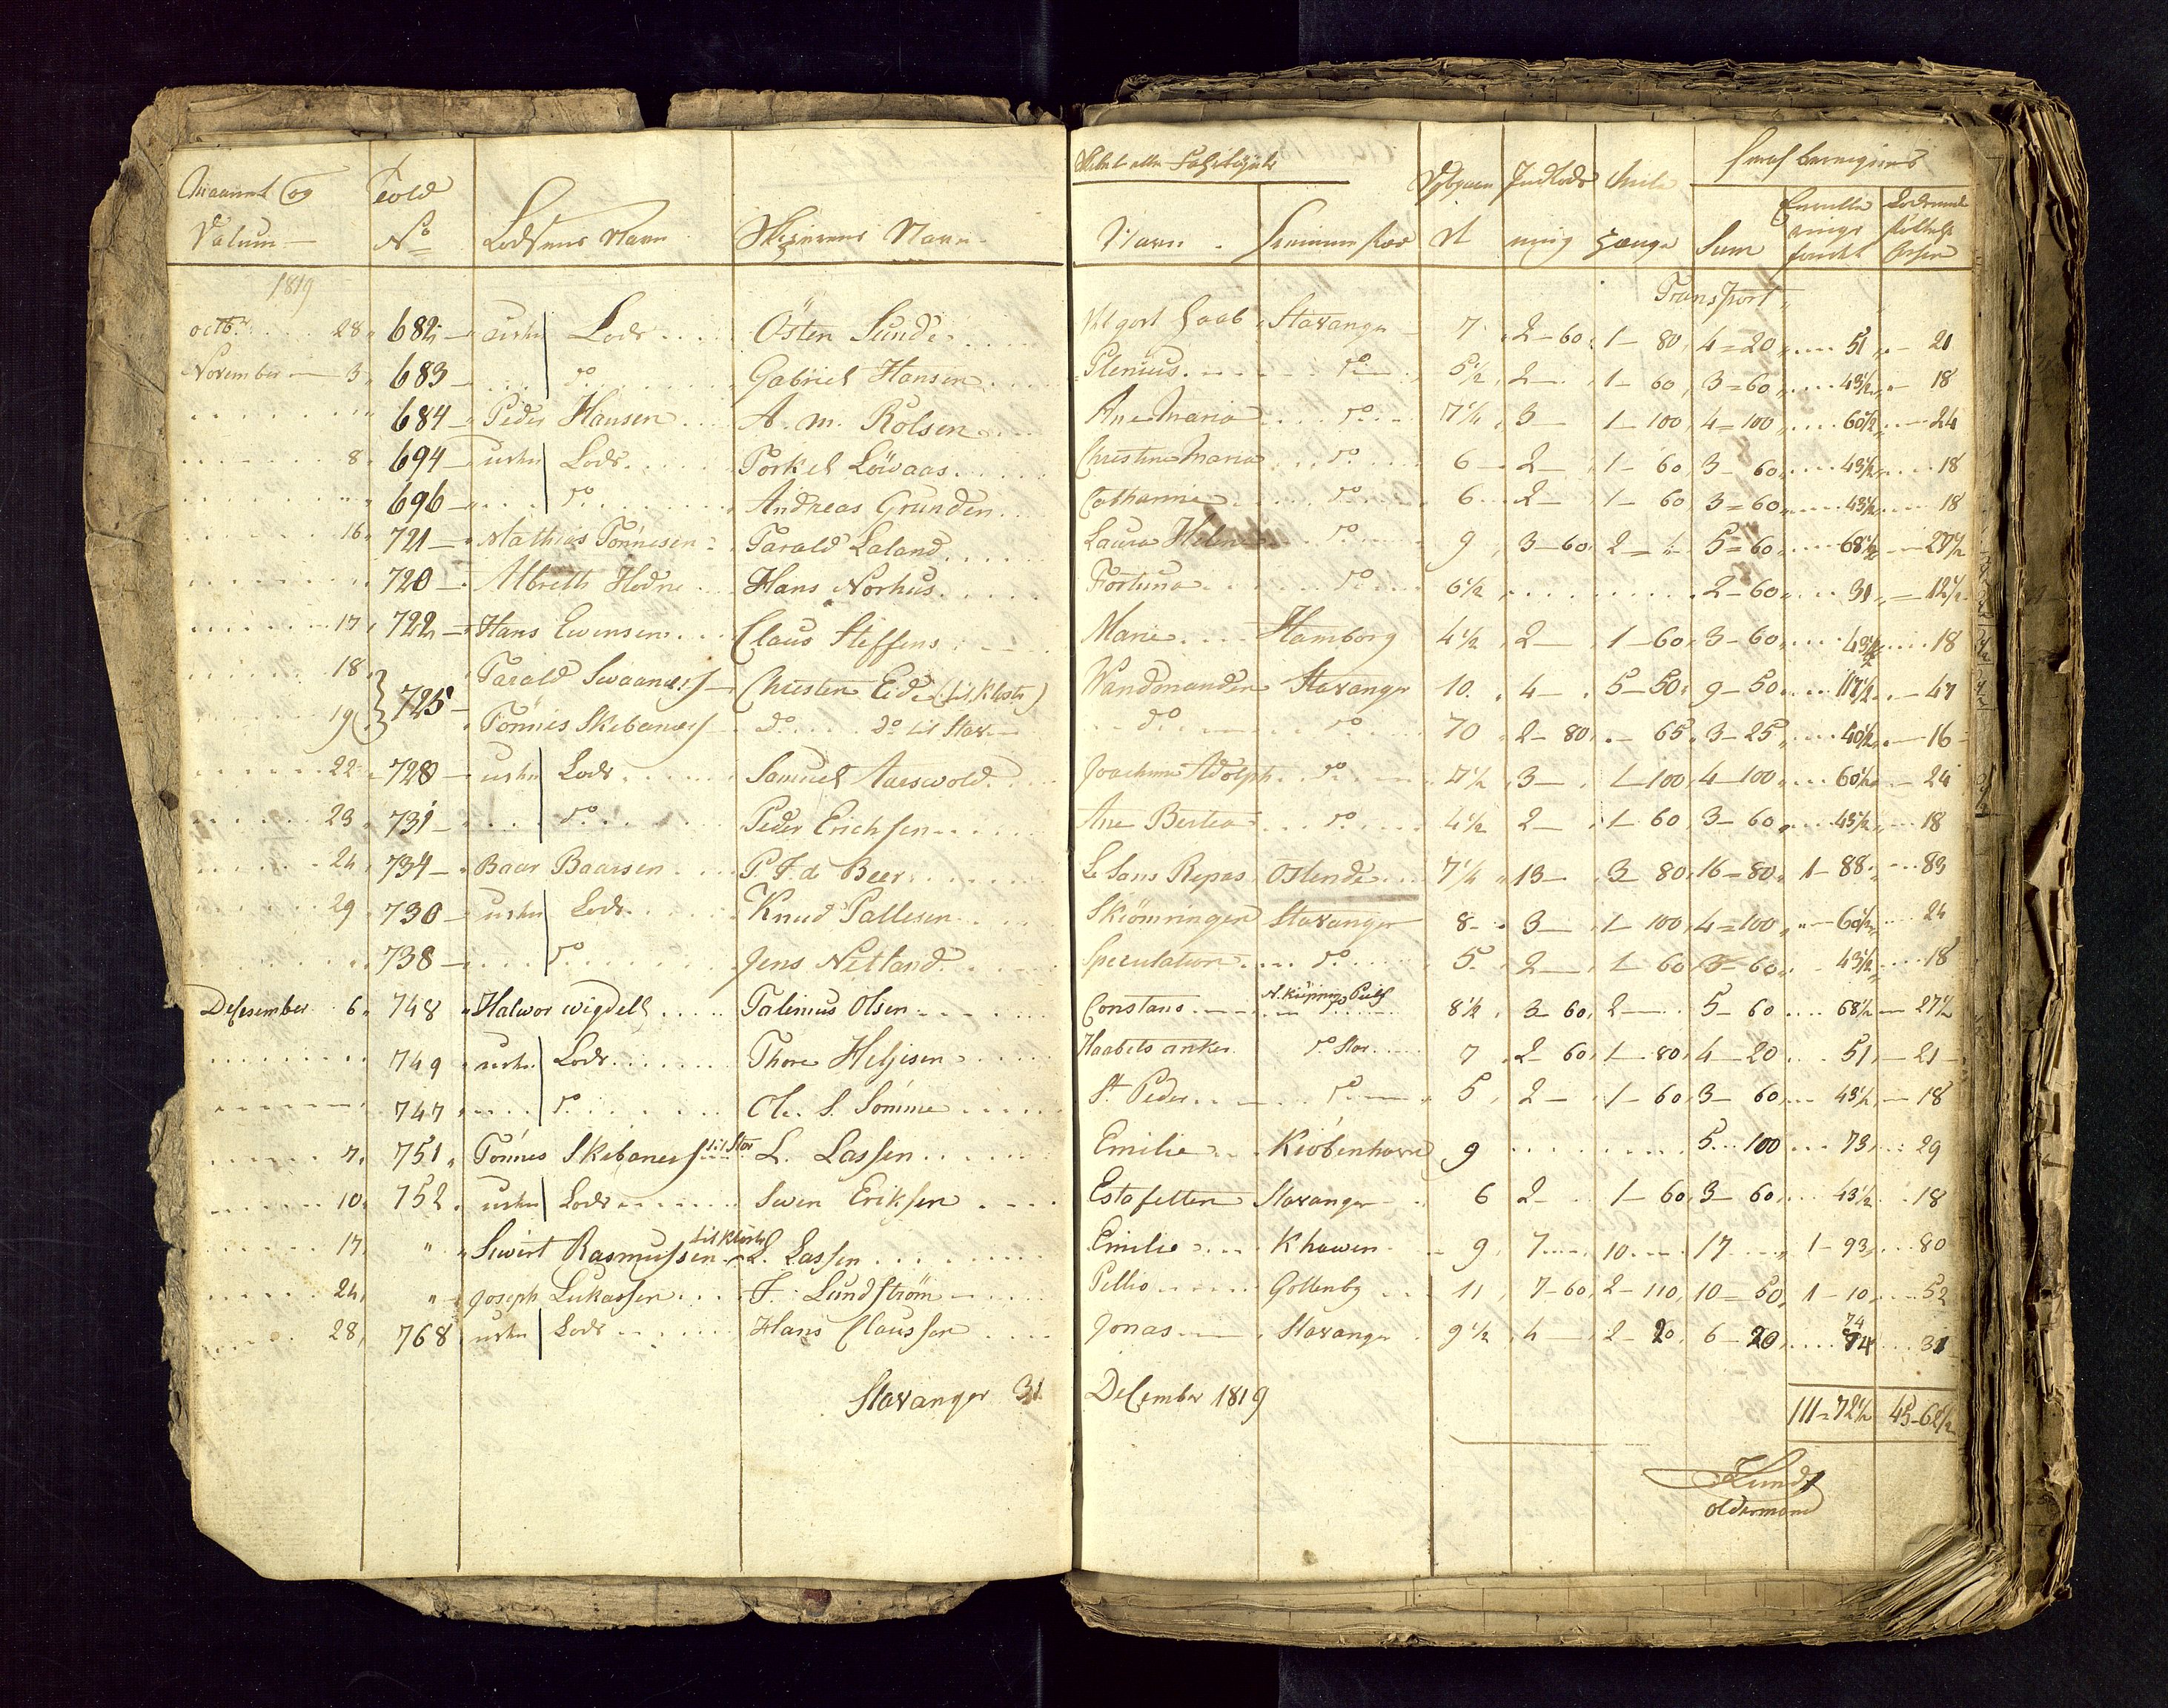 Maanet og Datum Told No Lodsens Navn Skipperens Navn
Navn Sum
1819 Transport
octbr 28 682 Lods Østen Sunde Stavanger 7 2-60 1-80 4-20 51 21
November 3 683 do Gabriel Hansen Plenius do 5½ 2 1-60 3-60 43½ 18
684 Peder Hansen A. M. Rolsen Ane Maria do 7¼ 3 1-100 4-100 60½ 24
8 694 Lods Torkel Löwaas Christine Maria do 6 2 1-60 3-60 43½ 18
696 do Andreas Grunden Catharine do 6 2 1-60 3-60 43½ 18
16 721 Mathias Tönnesen Tarald Laland Laura Helene do 9 3-60 2 5-60 68½ 27½
720 Albreth Hodne Hans Norhus Fortuna do 6½ 2-60 31 12½
17 722 Hans Ewensen Claus Steffens Marie Hamborg 4½ 2 1-60 3-60 43½ 18
18 725 Tarald Swaanæs Christen Eide (til Kloster) Wandmanden Stavanger 10 4 5-50 9-50 117½ 47
19 Tönnis Skebanæs do do til Stav do do 70 2-80 65 3-25 40½ 16
22 728 Lods Samuel Aareswold Joachim Adolph do 7½ 3 1-100 4-100 60½ 24
23 731 do Peder Erichsen Ane Bertea do 4½ 2 1-60 3-60 43½ 18
24 734 Baar Baarsen P. F. de Beer Le Sans Repos Ostende 7¼ 13 3-80 16-80 1-88 83
29 730 Lods Knud Pallesen Skiömringen Stavanger 8 3 1-100 4-100 60½ 24
738 do Jens Netland Speculation do 5 2 1-60 3-60 43½ 18
Desember 6 748 Halwor wigdell Talenius Olsen Constans 8½ 3-60 2 5-60 68½ 27½
749 Lods Thore Heljesen Haabets anker do Stav 7 2-60 1-80 4-20 51 21
747 do Ole S. Sömme St. Peder do 5 2 1-60 3-60 43½ 18
7 751 Tönnes Skebanes til Stav L. Lassen Emilie Kiöbenhavn 9 5-100 73 29
10 752 Lods Swen Eriksen Estafetten Stavanger 6 2 1-60 3-60 43½ 18
17 " Siwert Rasmussen til Kloster L. Lassen Emilie Khawen 9 7 10 17 1-93 80
24 " Joseph Lukassen F. Lundström Gottenbg 11 7-60 2-110 10-50 1-10 52
28 768 Lods Hans Claussen Jonas Stavanger 9½ 4 2-20 6-20 74 74 31
Stavanger 31 December 1819 111-72½ 45-62½
oldermand